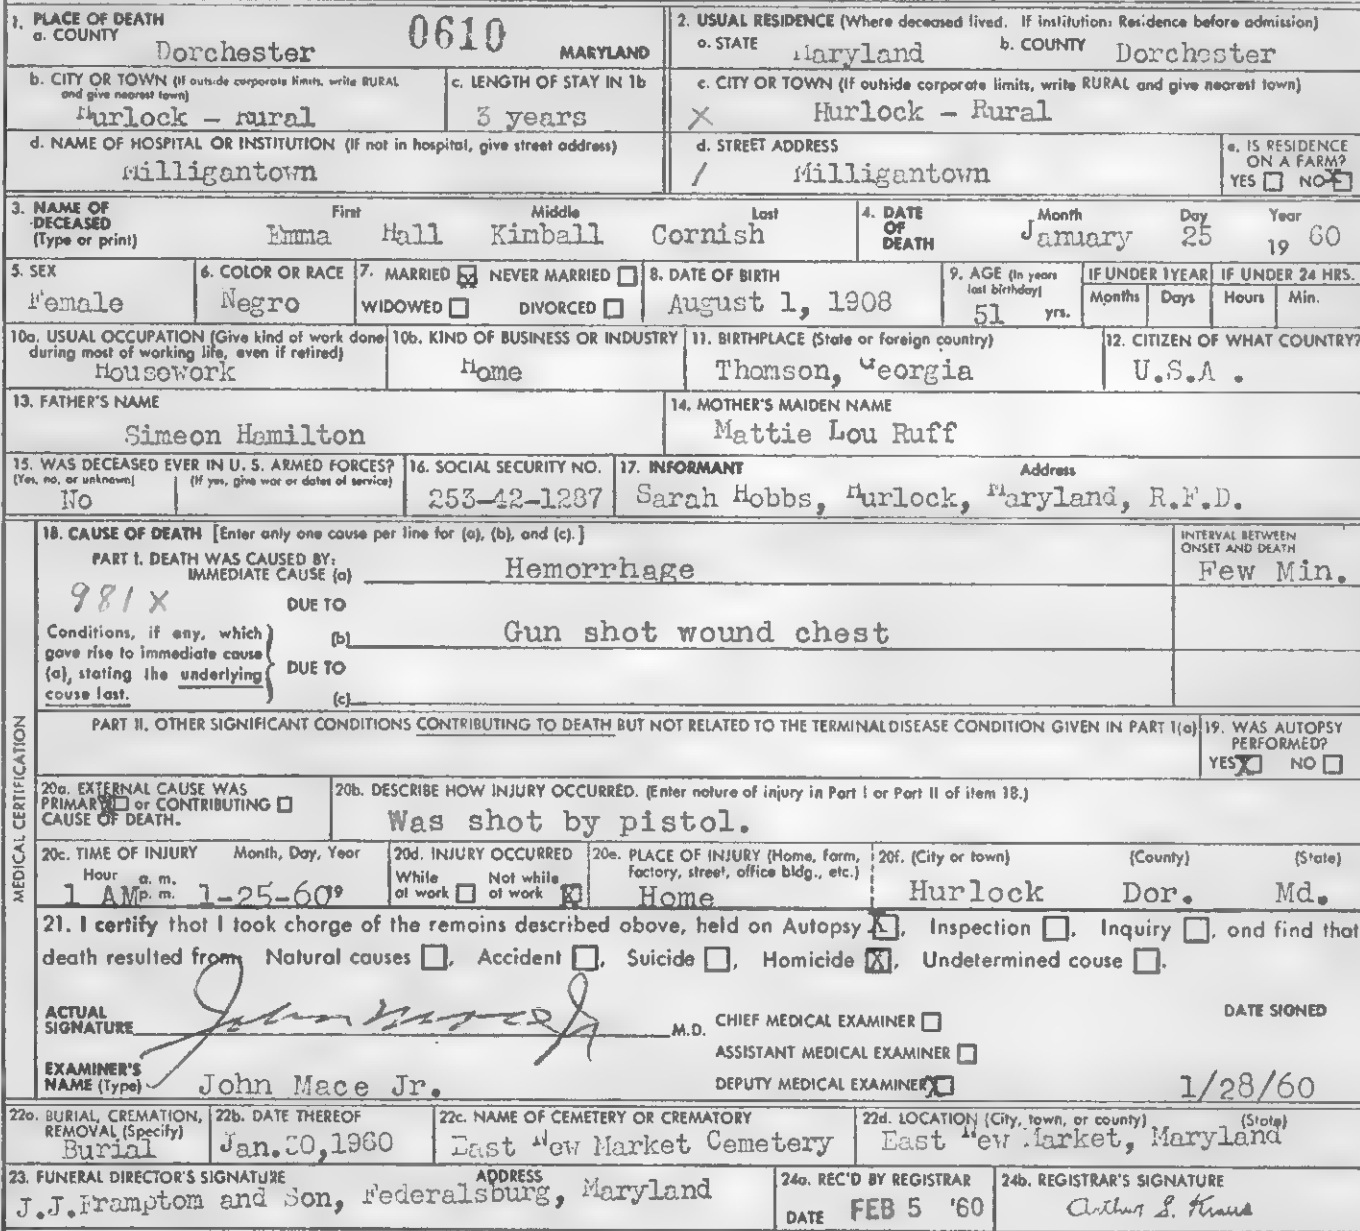 1. PLACE OF DEATH
a. COUNTY Dorchester 0610 MARYLAND
2. USUAL RESIDENCE (Where deceased lived. If institution: Residence before admission)
a. STATE Maryland b. COUNTY Dorchester
b. CITY OR TOWN (If outside corporate limits, write RURAL and give nearest town)
Hurlock - Rural
c. LENGTH OF STAY IN 1b
3 years
c. CITY OR TOWN (If outside corporate limits, write RURAL and give nearest town)
X Hurlock - Rural
d. NAME OF HOSPITAL OR INSTITUTION (If not in hospital, give street address)
Milligantown
d. STREET ADDRESS
/ Milligantown
e. IS RESIDENCE ON A FARM?
YES NO X
3. NAME OF DECEASED (Type or print)
First Middle Last
Emma Hall Kimball Cornish
4. DATE OF DEATH
Month Day Year
January 25 1960
5. SEX
Female
6. COLOR OR RACE
Negro
7. MARRIED X NEVER MARRIED
WIDOWED DIVORCED
8. DATE OF BIRTH
August 1, 1908
9. AGE (In years last birthday)
51 yrs.
IF UNDER 1 YEAR
Months Days
IF UNDER 24 HRS.
Hours Min.
10a. USUAL OCCUPATION (Give kind of work done during most of working life, even if retired)
Housework
10b. KIND OF BUSINESS OR INDUSTRY
Home
11. BIRTHPLACE (State or foreign country)
Thomson, Georgia
12. CITIZEN OF WHAT COUNTRY?
U.S.A .
13. FATHER'S NAME
Simeon Hamilton
14. MOTHER'S MAIDEN NAME
Mattie Lou Ruff
15. WAS DECEASED EVER IN U. S. ARMED FORCES?
(Yes, no, or unknown) (If yes, give war or dates of service)
No
16. SOCIAL SECURITY NO.
253-42-1287
17. INFORMANT Address
Sarah Hobbs, Hurlock, Maryland, R.F.D.
MEDICAL CERTIFICATION
18. CAUSE OF DEATH [Enter only one cause per line for (a), (b), and (c).]
INTERVAL BETWEEN ONSET AND DEATH
PART I. DEATH WAS CAUSED BY:
IMMEDIATE CAUSE (a) Hemorrhage Few Min.
981X
DUE TO
Conditions, if any, which gave rise to immediate cause (a), stating the underlying cause last.
(b) Gun shot wound chest
DUE TO
(c)
PART II. OTHER SIGNIFICANT CONDITIONS CONTRIBUTING TO DEATH BUT NOT RELATED TO THE TERMINAL DISEASE CONDITION GIVEN IN PART 1(a)
19. WAS AUTOPSY PERFORMED?
YES X NO
20a. EXTERNAL CAUSE WAS
PRIMARY X or CONTRIBUTING
CAUSE OF DEATH.
20b. DESCRIBE HOW INJURY OCCURRED. (Enter nature of injury in Part I or Part II of item 18.)
Was shot by pistol.
20c. TIME OF INJURY Month, Day, Year
Hour a. m. p. m. 19
1 AM 1-25-60
20d. INJURY OCCURRED
While at work Not while at work X
20e. PLACE OF INJURY (Home, farm, factory, street, office bldg., etc.)
Home
20f. (City or town) (County) (State)
Hurlock Dor. Md.
21. I certify that I took charge of the remains described above, held on Autopsy X, Inspection , Inquiry , and find that
death resulted from Natural causes , Accident , Suicide , Homicide X, Undetermined cause .
ACTUAL SIGNATURE John Mace Jr M.D.
CHIEF MEDICAL EXAMINER
DATE SIGNED
ASSISTANT MEDICAL EXAMINER
EXAMINER'S NAME (Type) John Mace Jr.
DEPUTY MEDICAL EXAMINER X
1/28/60
22a. BURIAL, CREMATION, REMOVAL (Specify)
Burial
22b. DATE THEREOF
Jan.30,1960
22c. NAME OF CEMETERY OR CREMATORY
East New Market Cemetery
22d. LOCATION (City, town, or county) (State)
East New Market, Maryland
23. FUNERAL DIRECTOR'S SIGNATURE ADDRESS
J.J.Framptom and Son, Federalsburg, Maryland
24a. REC'D BY REGISTRAR
DATE FEB 5 '60
24b. REGISTRAR'S SIGNATURE
Arthur S. Kraus